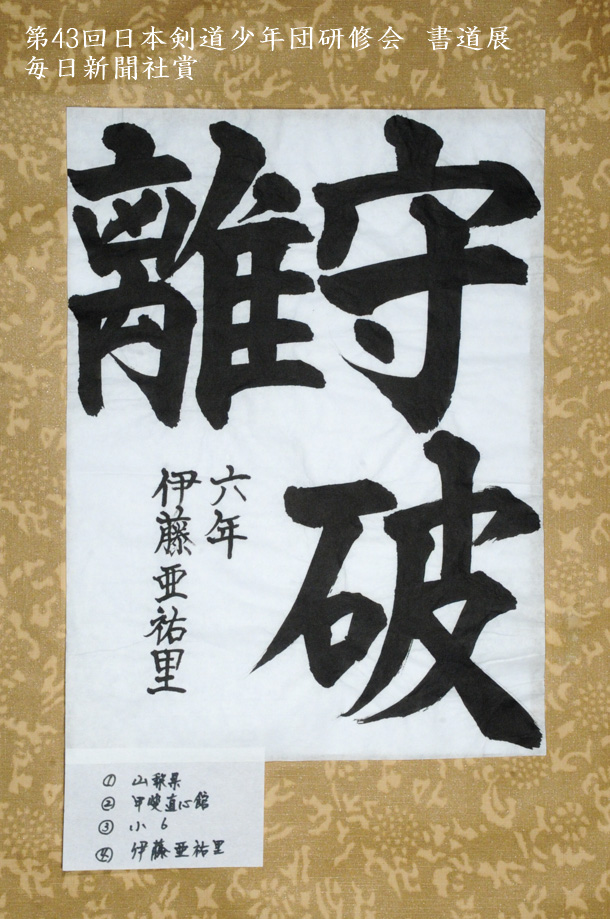 第43回日本剣道少年団研修会 書道展
毎日新聞社賞
守破
離
六年
伊藤亜祐里
① 山梨県
② 甲斐直心館
③ 小6
④ 伊藤亜祐里